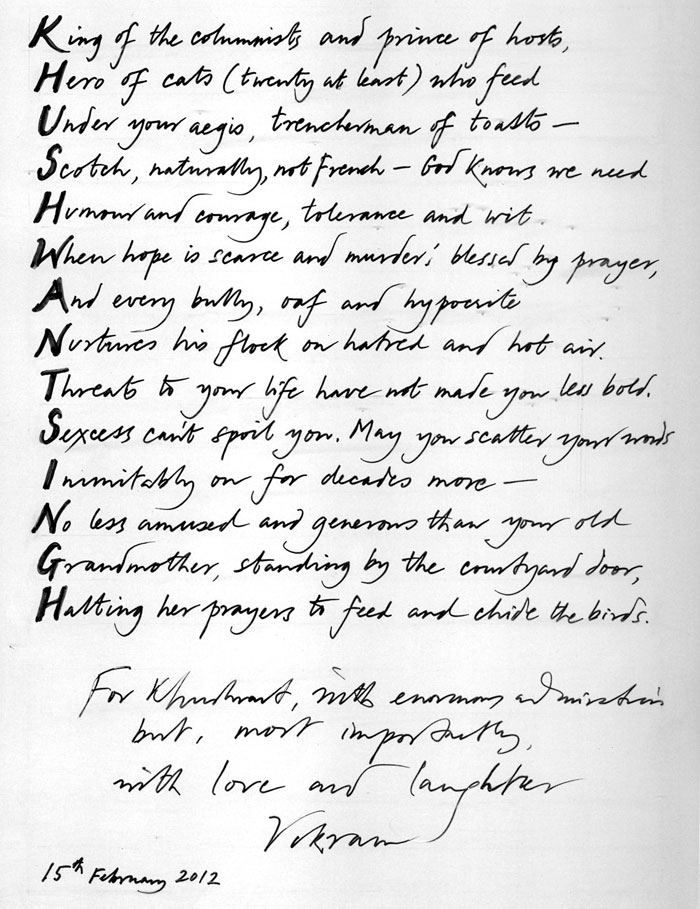 King of the columnists and prince of hosts,
Hero of cats (twenty at least) who feed
Under your aegis, trencherman of toasts —
Scotch, naturally, not French — God knows we need
Humour and courage, tolerance and wit
When hope is scarce and murder's blessed by prayer,
And every bully, oaf and hypocrite
Nurtures his flock on hatred and hot air.
Threats to your life have not made you less bold.
Sexcess can't spoil you. May you scatter your words
Inimitably on for decades more —
No less amused and generous than your old
Grandmother, standing by the courtyard door,
Halting her prayers to feed and chide the birds.
For Khushwant, with enormous admiration
but, most importantly,
with love and laughter
Vikram
15th February 2012